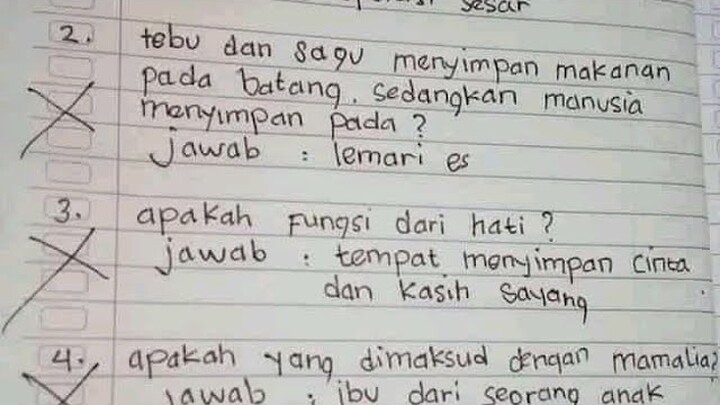 sesar
2. tebu dan sagu menyimpan makanan
pada batang. sedangkan manusia
menyimpan pada?
jawab : lemari es
3. apakah fungsi dari hati?
jawab : tempat menyimpan cinta
dan kasih sayang
4. apakah yang dimaksud dengan mamalia?
jawab : ibu dari seorang anak